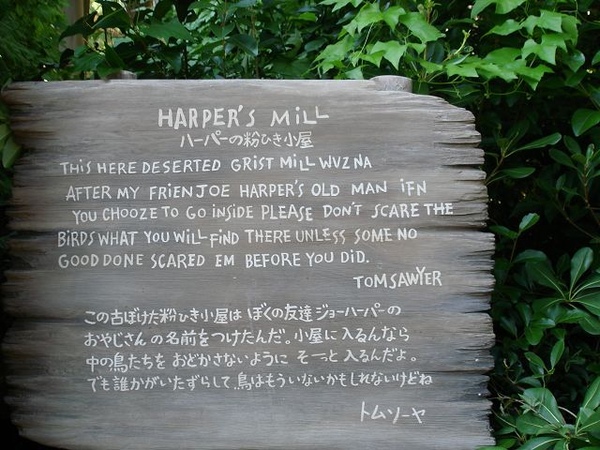 HARPER'S MiLL
ハーパーの粉ひき小屋
THiS HERE DESERTED GRiST MiLL WUZ NA
AFTER MY FRiEN JOE HARPER'S OLD MAN iFN
YOU CHOOZE TO GO iNSiDE PLEASE DON'T SCARE THE
BiRDS WHAT YOU WiLL FiND THERE UNLESS SOME NO
GOOD DONE SCARED EM BEFORE YOU DiD.
TOM SAWYER
この古ぼけた粉ひき小屋は ぼくの友達 ジョーハーパーの
おやじさんの名前をつけたんだ。小屋に入るんなら
中の鳥たちを おどかさないように そーっと入るんだよ。
でも誰かがいたずらして、鳥はもういないかもしれないけどね
トムソーヤ